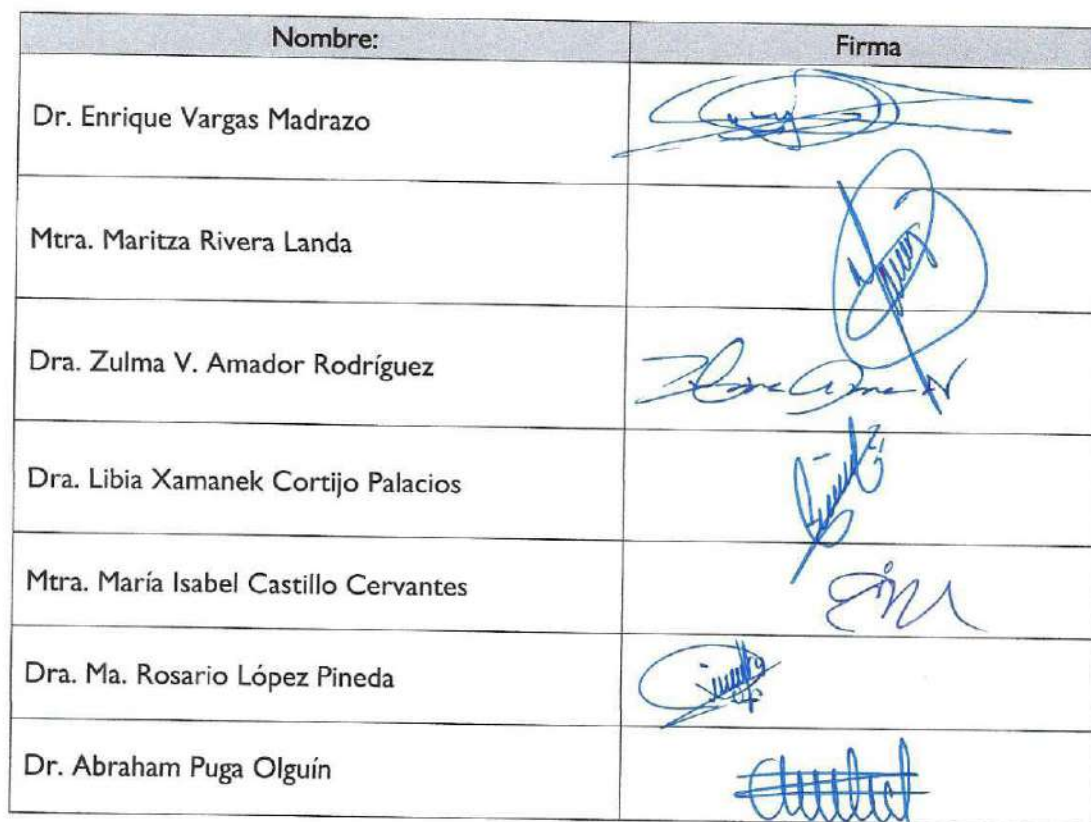 Nombre: Firma
Dr. Enrique Vargas Madrazo
Mtra. Maritza Rivera Landa
Dra. Zulma V. Amador Rodríguez
Dra. Libia Xamanek Cortijo Palacios
Mtra. María Isabel Castillo Cervantes
Dra. Ma. Rosario López Pineda
Dr. Abraham Puga Olguín